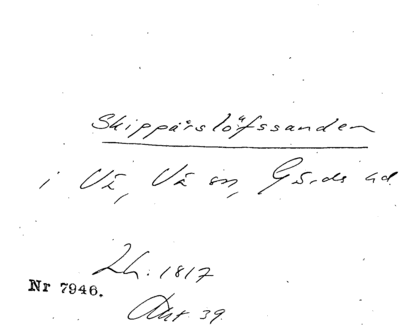 Skippärslöfssanden
i Vä, Vä sn, Gärds hd
Lh. 1817
Nr 7946.
Akt 39.